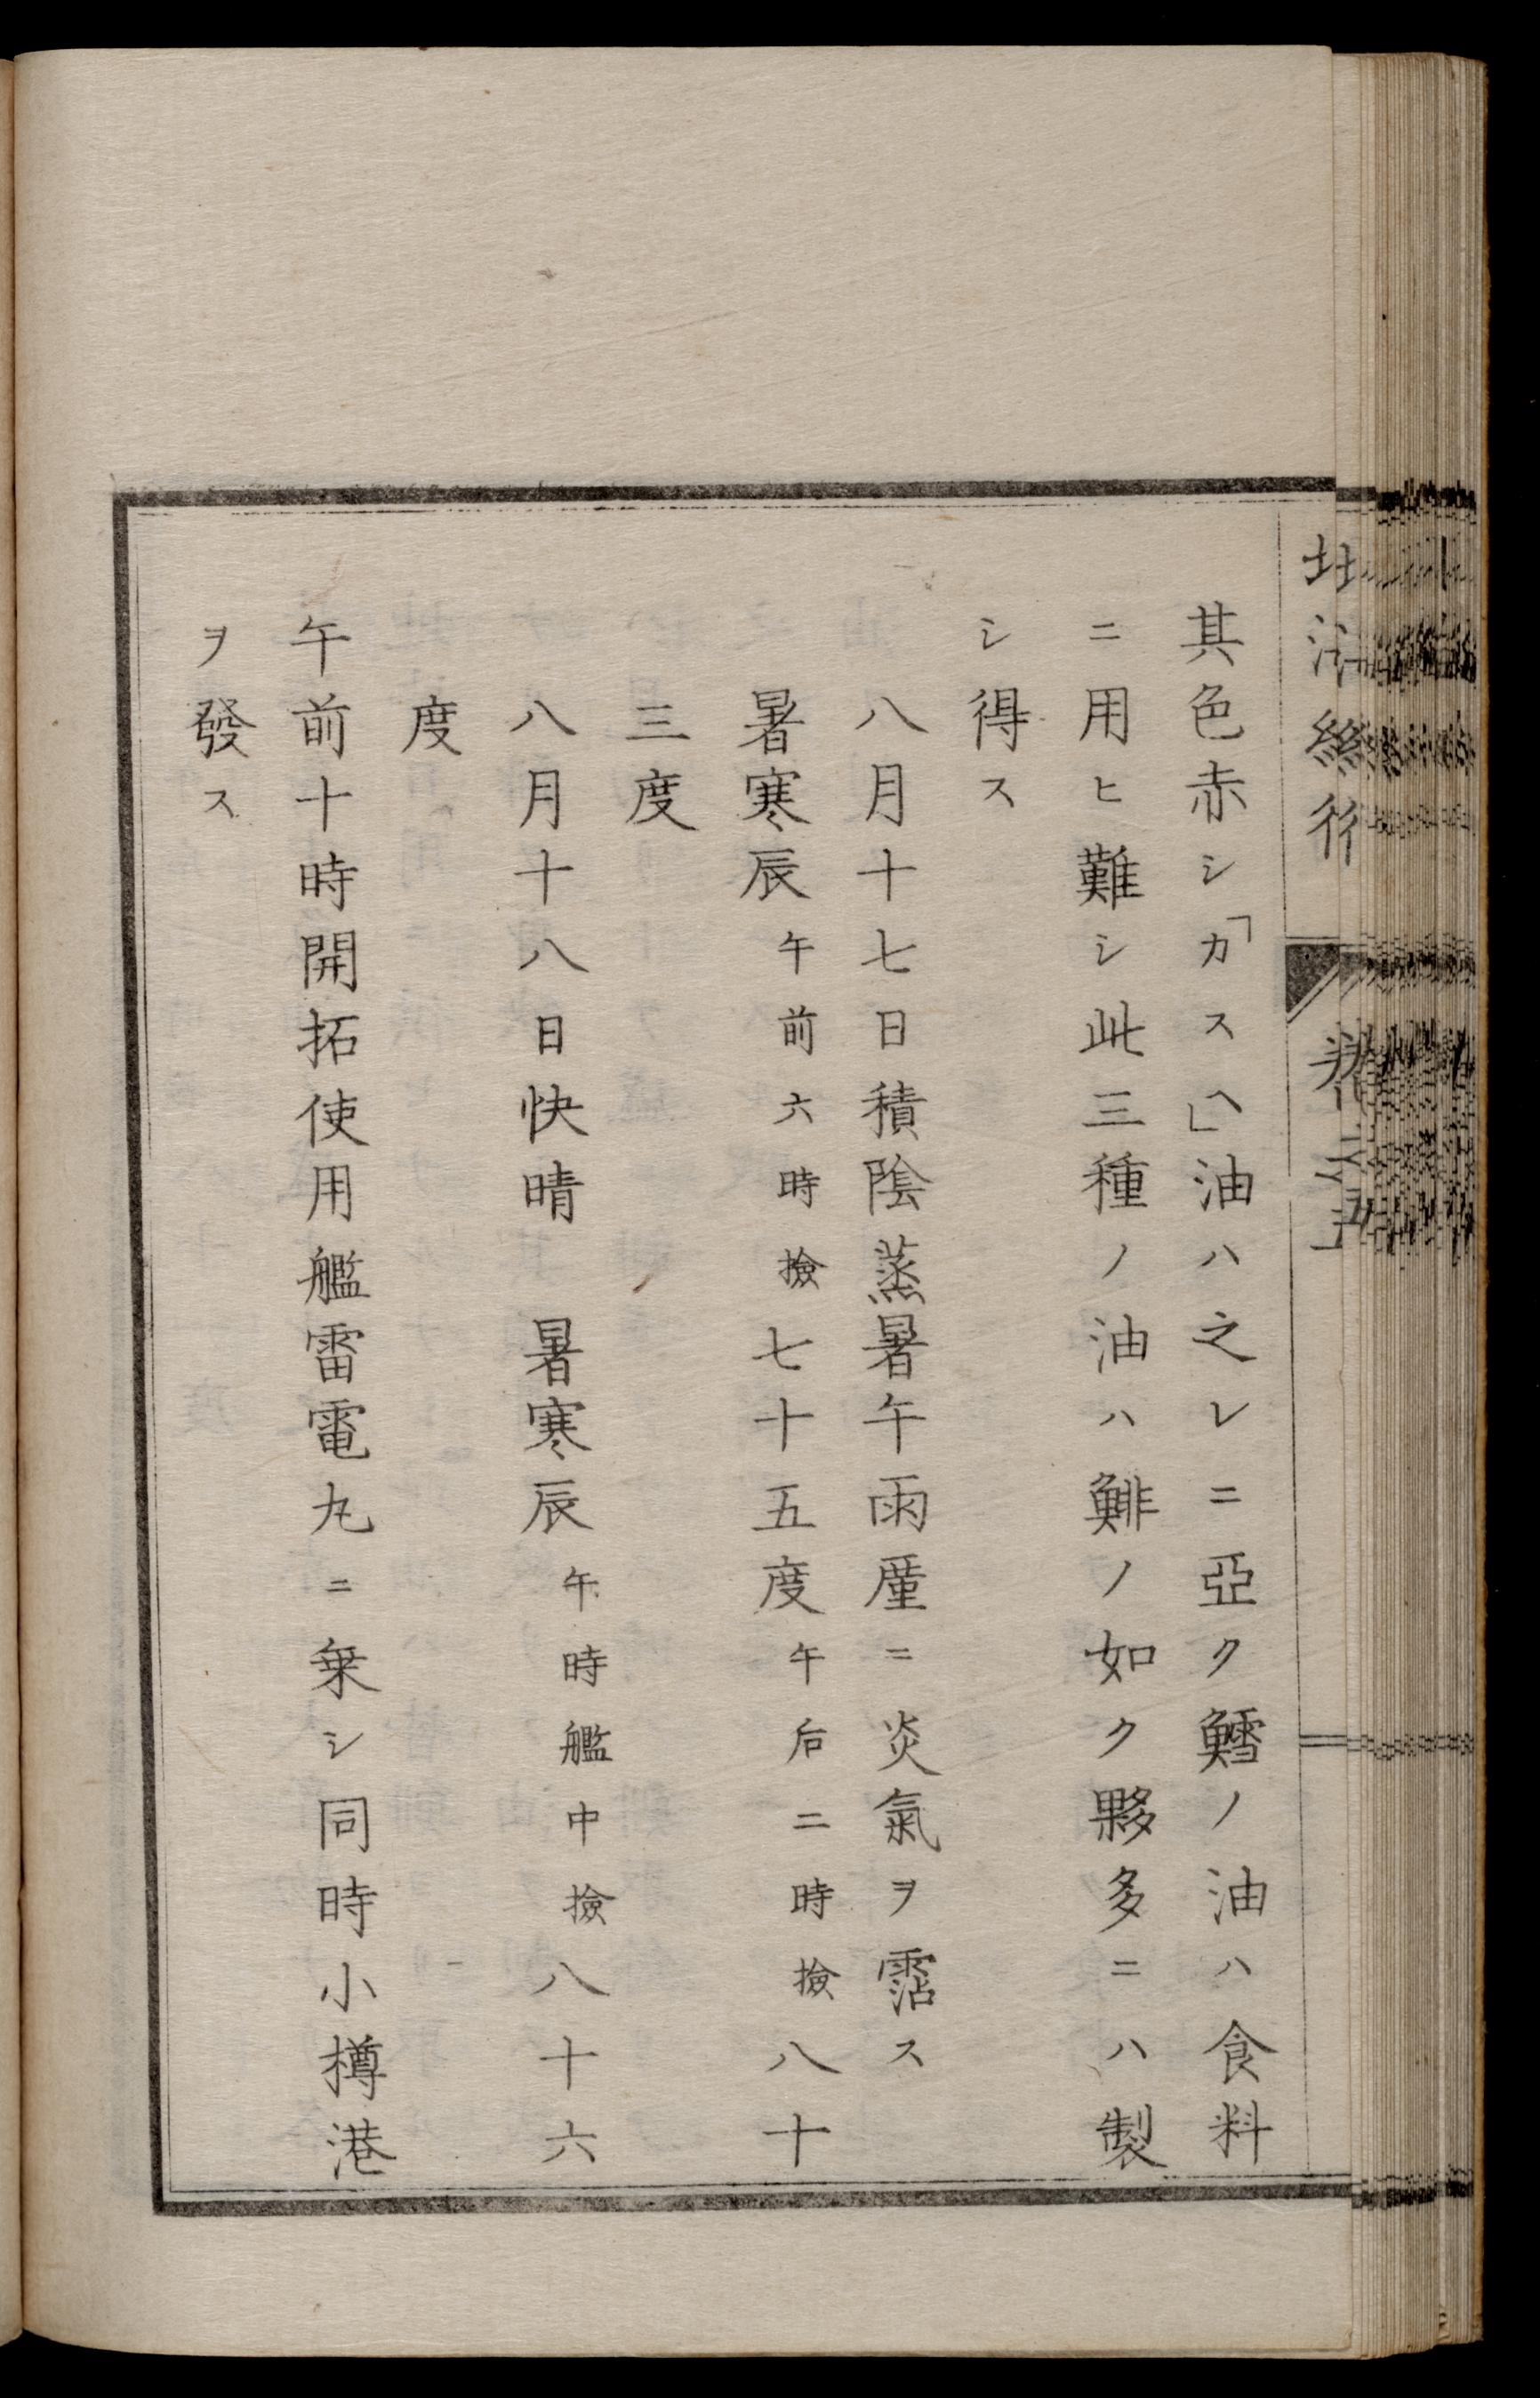 其色赤シ「カスヘ」油ハ之レニ亞ク鱈ノ油ハ食料
ニ用ヒ難シ此三種ノ油ハ鯡ノ如ク夥多ニハ製
シ得ス
八月十七日積陰蒸暑午雨厪ニ炎氣ヲ霑ス
暑寒辰午前六時撿七十五度午后二時撿八十
三度
八月十八日快晴　暑寒辰午時艦中撿八十六
度
午前十時開拓使用艦雷電丸ニ乗シ同時小樽港
ヲ發ス